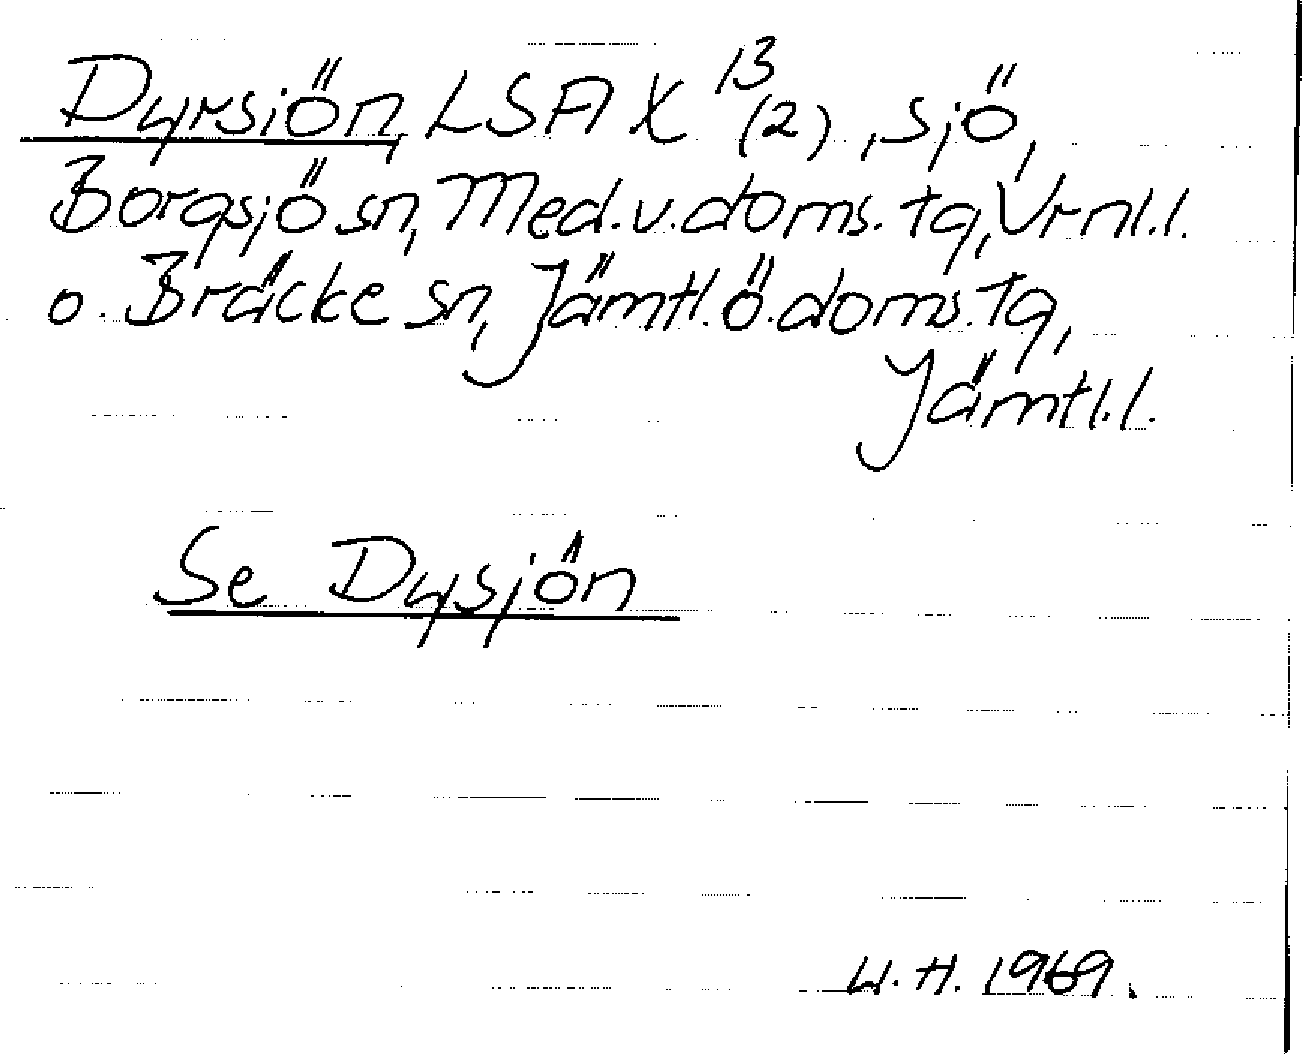 Dyrsjön, LSA X 13 (2), sjö,
Borgsjö sn, Med. v. doms. tg, Vrnl. l.
o. Bräcke sn, Jämtl. ö. doms. tg,
Jämtl. l.
Se Dysjön
W. H. 1969.